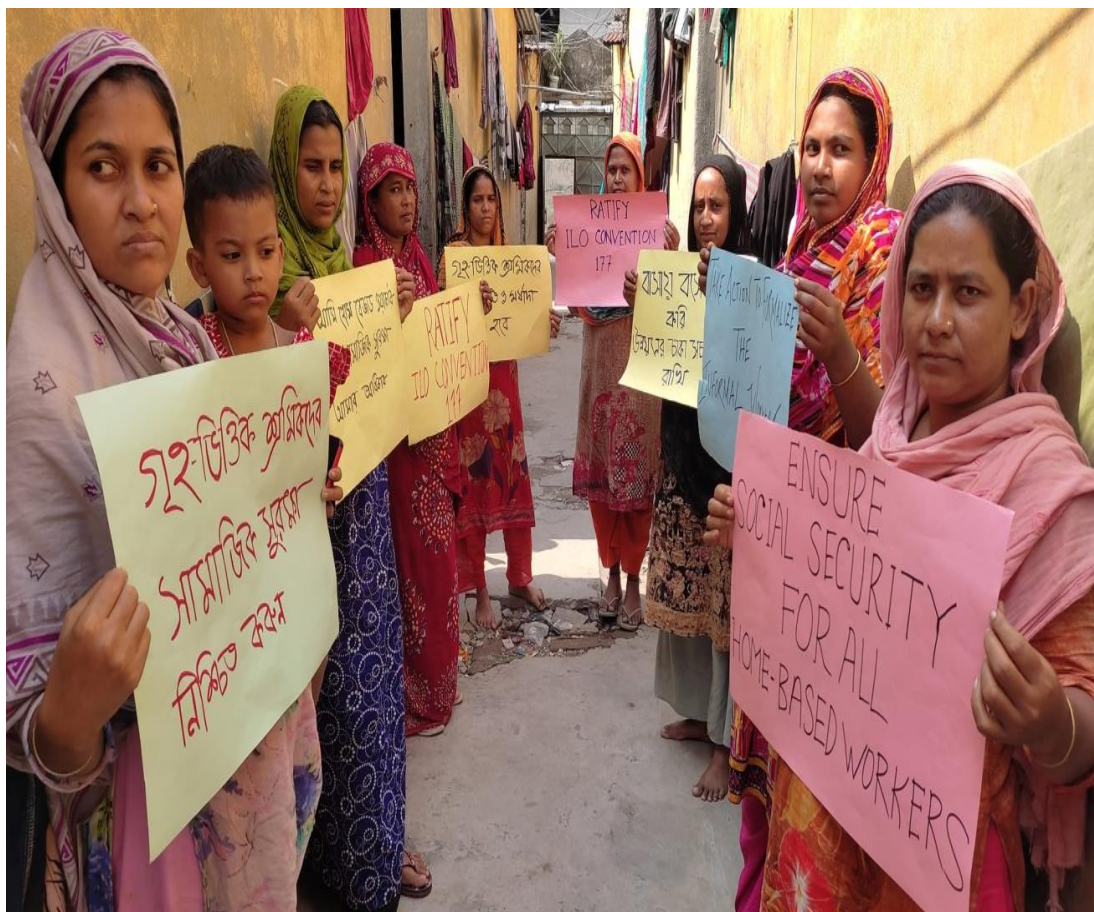 গৃহ-ভিত্তিক শ্রমিকদের
সামাজিক সুরক্ষা
নিশ্চিত করুন
আমি হোম বেজড
সামাজিক সুরক্ষা
আমার অধিকার
RATIFY
ILO CONVENTION
177
গৃহ-ভিত্তিক শ্রমিকদের
ও মর্যাদা
হবে
RATIFY
ILO CONVENTION
177
বাসায়
করি
উন্নয়নের চাকা
রাখি
TAKE ACTION TO FORMALIZE
THE
INFORMAL
ENSURE
SOCIAL SECURITY
FOR ALL
HOME-BASED WORKERS